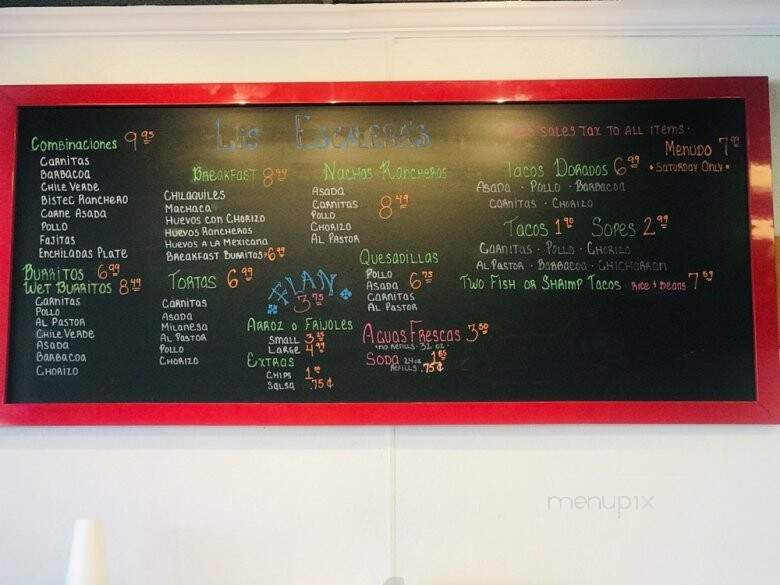 Los Escalera's
Sales Tax to all items.
Combinaciones 9.95
Carnitas
Barbacoa
Chile Verde
Bistec Ranchero
Carne Asada
Pollo
Fajitas
Enchiladas Plate
Burritos 6.99
Wet Burritos 8.49
Carnitas
Pollo
Al Pastor
Chile Verde
Asada
Barbacoa
Chorizo
Breakfast 8.49
Chilaquiles
Machaca
Huevos con Chorizo
Huevos Rancheros
Huevos a la Mexicana
Breakfast Burritos 6.99
Tortas 6.99
Carnitas
Asada
Milanesa
Al Pastor
Pollo
Chorizo
Nachos Rancheros
Asada
Carnitas 8.49
Pollo
Chorizo
Al Pastor
Flan
3.75
Arroz o Frijoles
Small 3.25
Large 4.99
Extras
Chips 1.00
Salsa .75¢
Quesadillas
Pollo 6.75
Asada
Carnitas
Al Pastor
Aguas Frescas 3.50
"No Refills" 32 oz.
Soda 24oz 1.85
Refills .75¢
Menudo 7.99
• Saturday Only •
Tacos Dorados 6.99
Asada · Pollo · Barbacoa
Carnitas · Chorizo
Tacos 1.90 Sopes 2.99
Carnitas · Pollo · Chorizo
Al Pastor · Barbacoa · Chicharron
Two Fish or Shrimp Tacos Rice & Beans 7.59
menupix